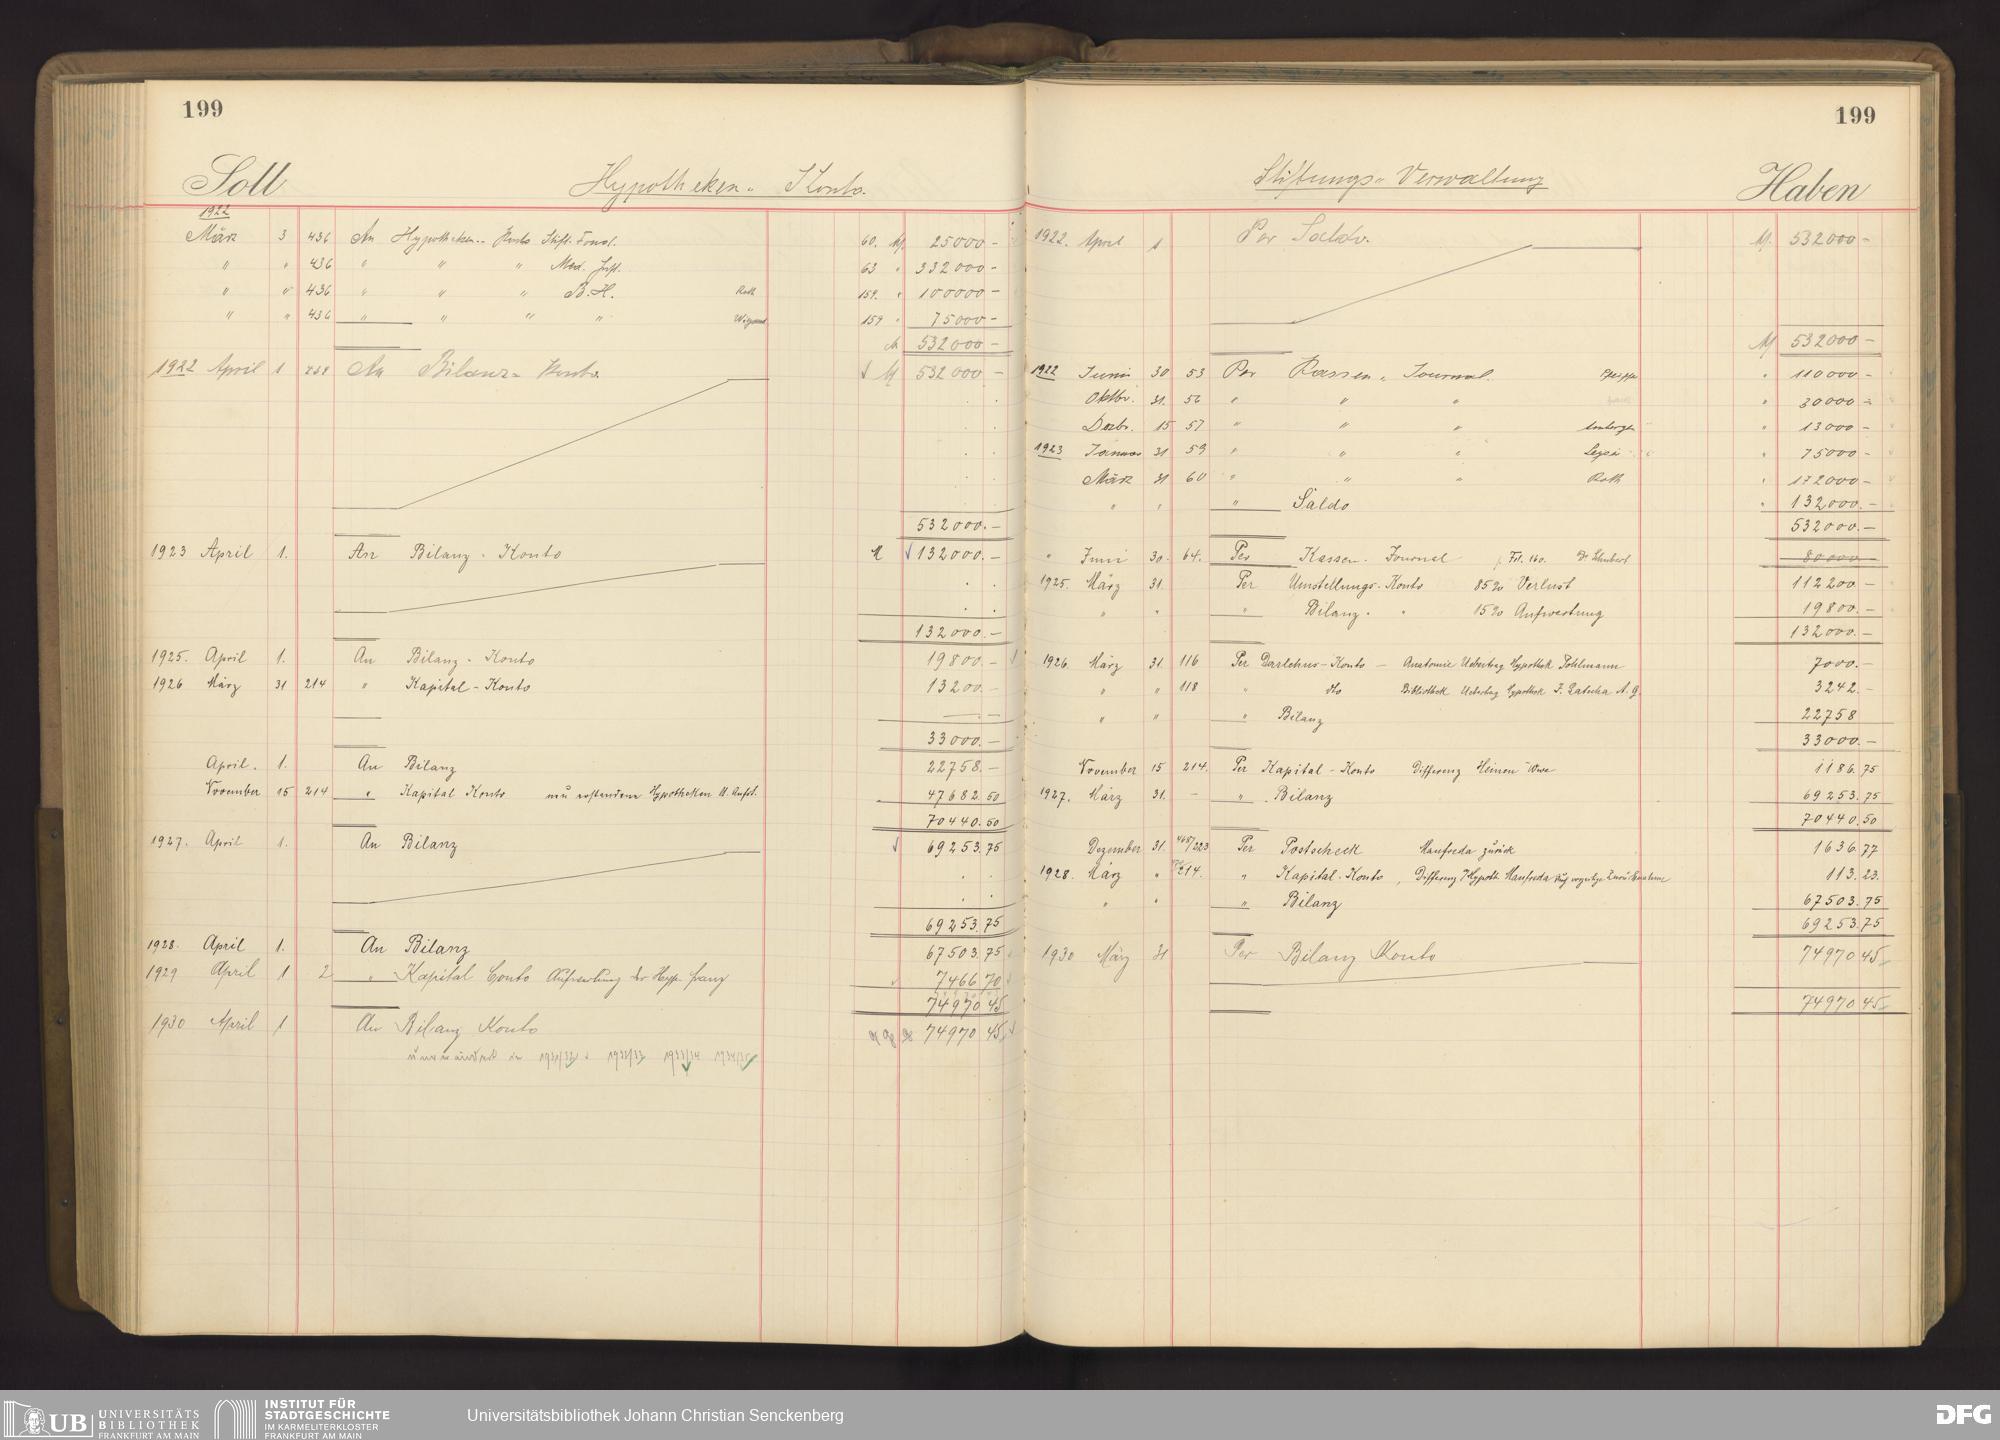 199
Soll Hypotheken- Konto.
1922
März 3 436 An Hypotheken- Konto Stift. Fond. 60. M. 25000 -
" " 436 " " " Med. Inst. 63 " 332000 -
" " 436 " " " B. H. Roth 159. " 100000 -
" " 436 " " " " 159 " 75000 -
M 532000 -
1922 April 1 An Bilanz- Konto. M 532000 -
532000.-
1923 April 1. An Bilanz- Konto M 132000.-
132000.-
1925. April 1. An Bilanz- Konto 19800.-
1926 März 31 214 " Kapital-Konto 13200.-
33000.-
April. 1. An Bilanz 22758.-
November 15 214 " Kapital Konto neu Hypotheken 47682.50
70440.50
1927. April 1. An Bilanz 69253.75
69253.75
1928. April 1. An Bilanz 67503.75
1929 April 1 2 " Kapital Conto Aufwertung der Hyp. 7466 70
74970 45
1930 April 1 An Bilanz Konto 74970 45
unverändert in 1931/32 1932/33 1933/34 1934/35
199
Stiftungs- Verwaltung Haben
1922. April 1 Per Saldo. M. 532000 -
M 532000 -
1922 Juni 30 53 Per Kassen- Journal. " 110000 -
Oktbr. 31. 56 " " " " 30000 -
Dezbr. 15 57 " " " " 13000 -
1923 Januar 31 59 " " " " 75000 -
März 31 60 " " " Roth " 172000 -
" " " Saldo " 132000.-
532000.-
" Juni 30. 64. Per Kassen- Journal Fol. 160. Dr. Schubert 80000
1925. März 31. Per Umstellungs-Konto 85% Verlust 112200.-
" " " Bilanz- " 15% Aufwertung 19800.-
132000.-
1926. März 31. 116 Per Darlehns-Konto - Anatomie Uebertrag Hypothek Pohlmann 7000.-
" " 118 " dto Bibliothek Uebertrag Hypothek A. G. 3242.-
" " " Bilanz 22758
33000.-
November 15 214. Per Kapital-Konto Differenz Heinen Wwe 1186.75
1927. März 31. - " Bilanz 69253.75
70440.50
Dezember 31. 468/223 Per Postscheck Manfreda zurück 1636.77
1928. März " 214. " Kapital-Konto, Differenz Hypoth. Manfreda 113.23.
" " " Bilanz 67503.75
69253.75
1930 März 31 Per Bilanz Konto 74970 45
74970 45
UB UNIVERSITÄTS
BIBLIOTHEK
FRANKFURT AM MAIN
INSTITUT FÜR
STADTGESCHICHTE
IM KARMELITERKLOSTER
FRANKFURT AM MAIN
Universitätsbibliothek Johann Christian Senckenberg
DFG